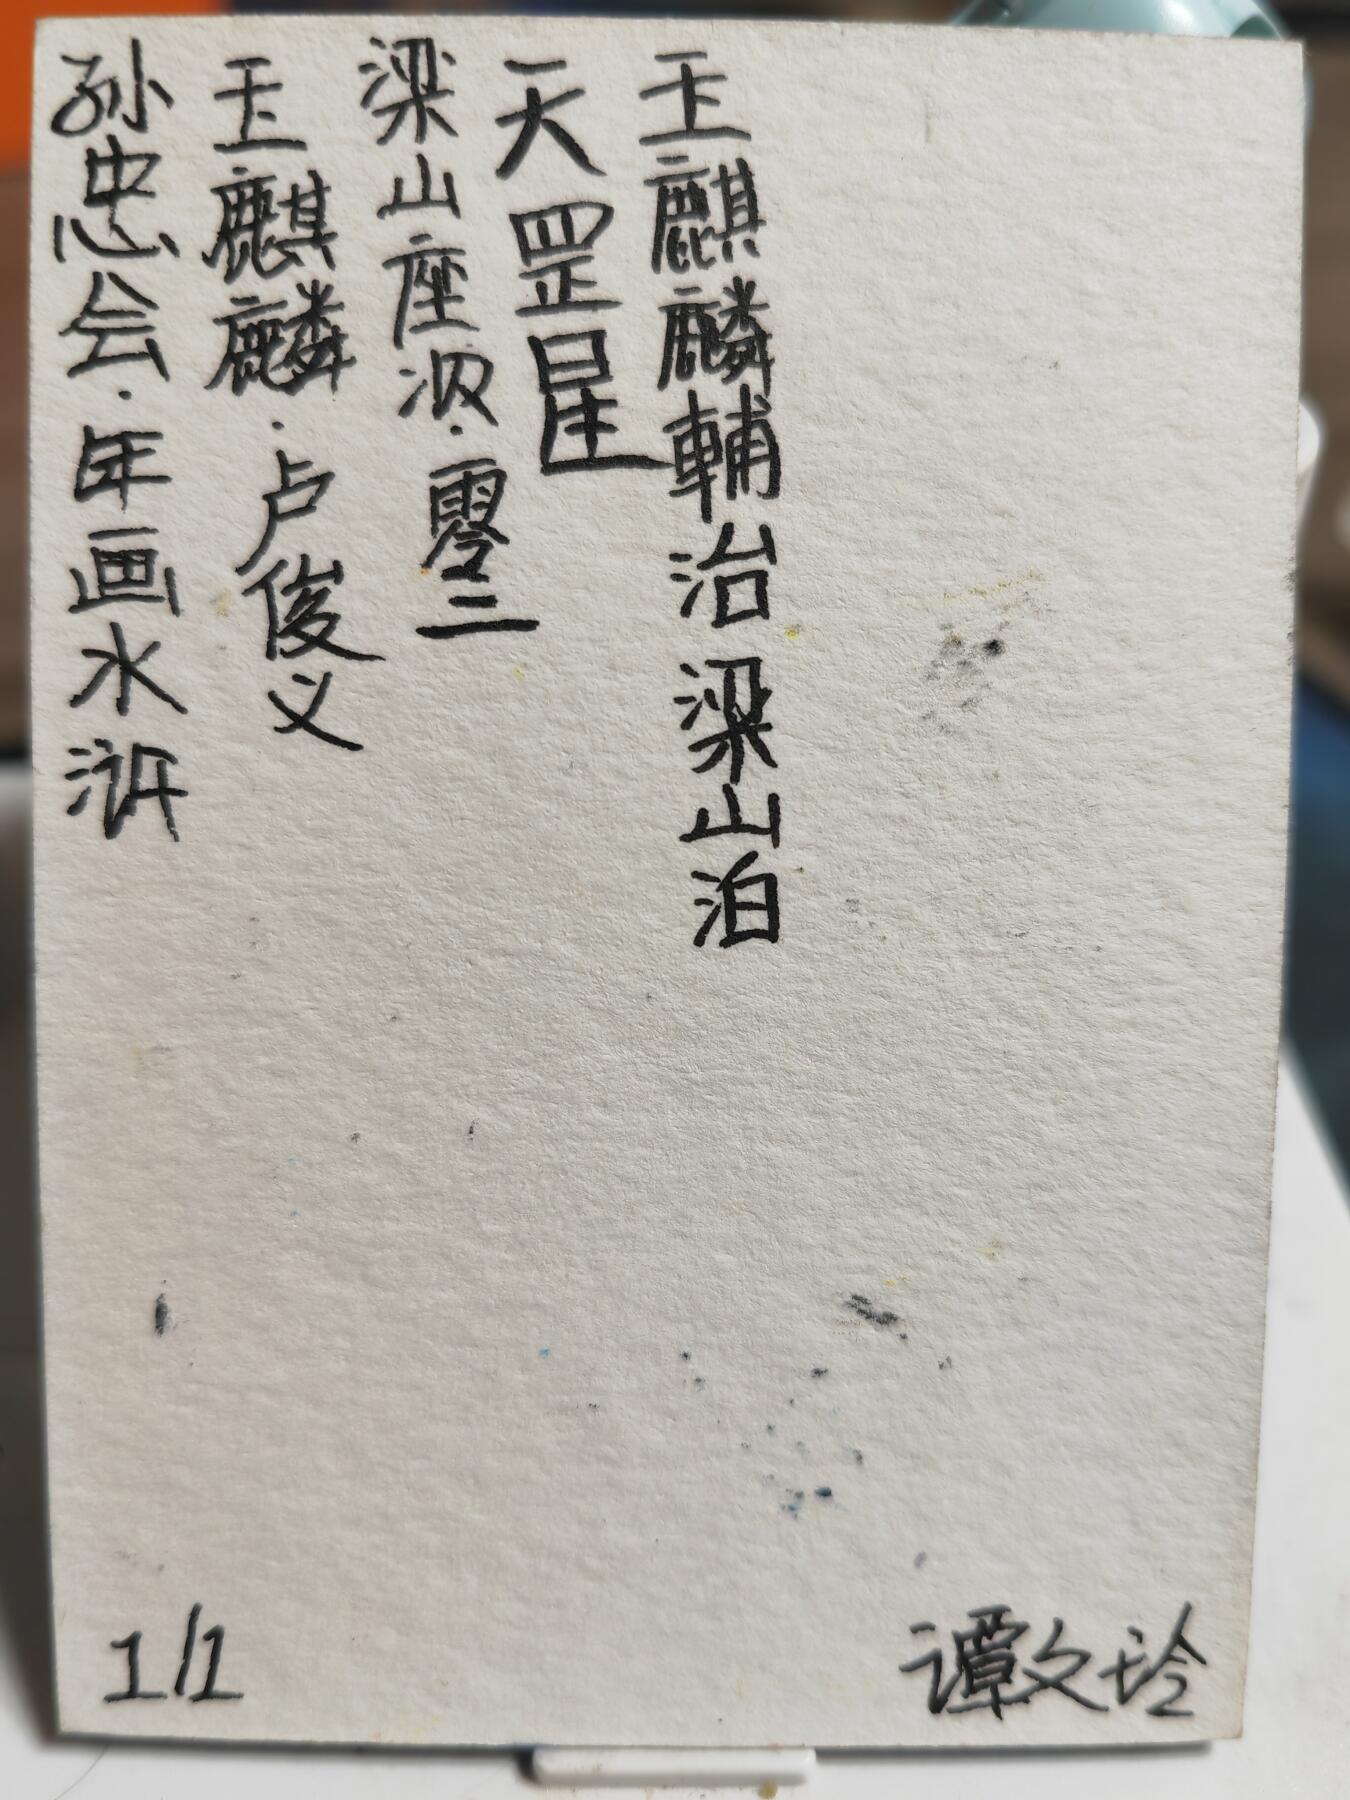 孙忠会·年画水浒
玉麒麟·卢俊义
梁山座次·零二
天罡星
玉麒麟輔治梁山泊
1/1
谭文玲